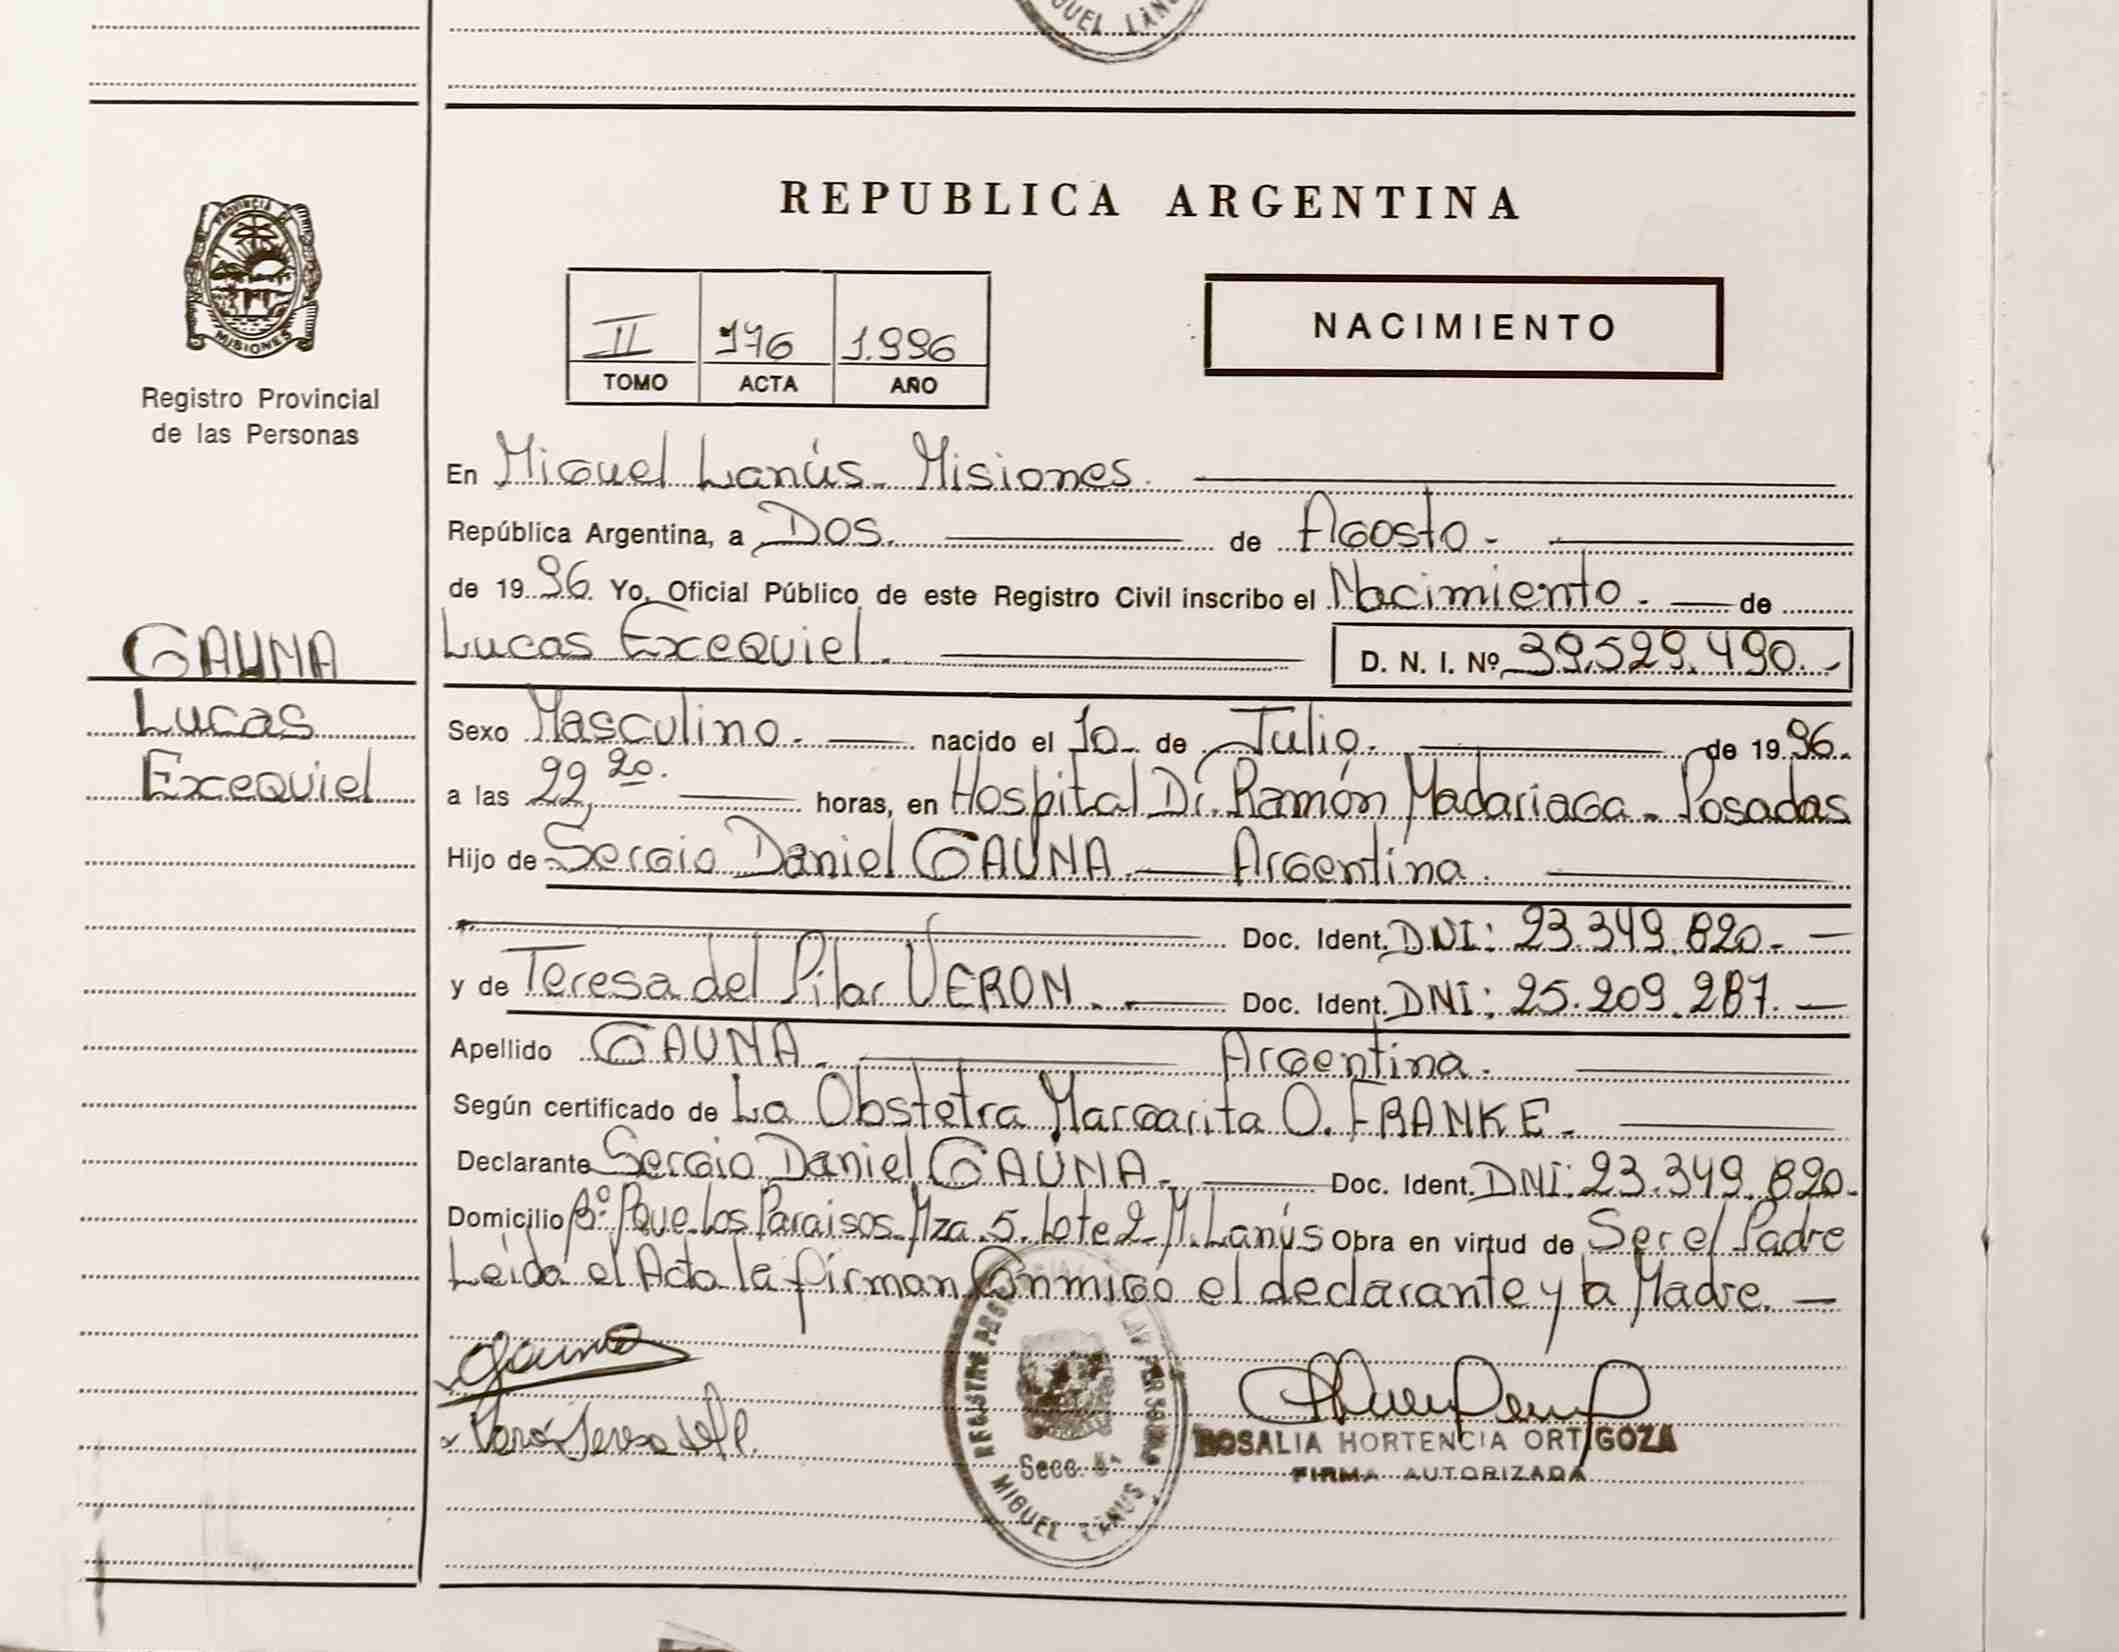 MIGUEL LANUS
REPUBLICA ARGENTINA
PROVINCIA DE
MISIONES
Registro Provincial
de las Personas
II 176 1.996
TOMO ACTA AÑO
NACIMIENTO
En Miguel Lanús. Misiones.
República Argentina, a Dos. de Agosto.
de 1996. Yo, Oficial Público de este Registro Civil inscribo el Nacimiento. de
GAUNA
Lucas
Excequiel
Lucas Excequiel. D. N. I. Nº 39.529.490.
Sexo Masculino. nacido el 10 de Julio. de 1996.
a las 22,20. horas, en Hospital Dr. Ramón Madariaga. Posadas
Hijo de Sergio Daniel GAUNA. Argentina.
Doc. Ident. DNI: 23.349.820.
y de Teresa del Pilar VERON. Doc. Ident. DNI: 25.209.287.
Apellido GAUNA. Argentina.
Según certificado de La Obstetra Margarita O. FRANKE.
Declarante Sergio Daniel GAUNA. Doc. Ident. DNI: 23.349.820.
Domicilio Bº: Pque. Los Paraisos. Mza. 5. Lote 2 M. Lanús Obra en virtud de Ser el Padre
Leida el Acta la firman Conmigo el declarante y la Madre.
Gauna
REGISTRO LAS PERSONAS
Secc. 5ª
MIGUEL LANUS
ROSALIA HORTENCIA ORTIGOZA
FIRMA AUTORIZADA